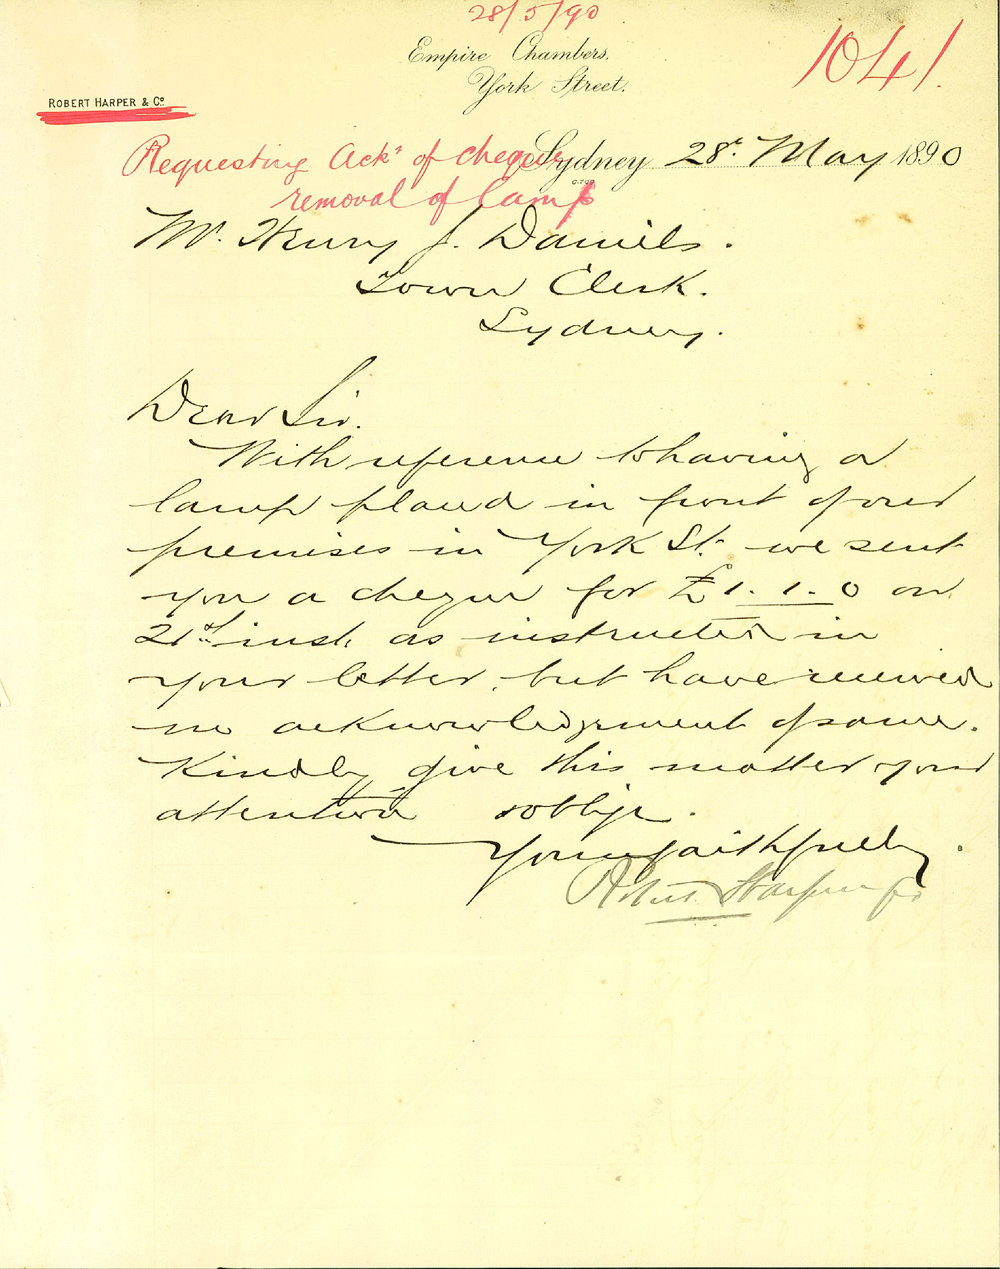 28/5/90
Empire Chambers.
York Street.
1041.
ROBERT HARPER & Co.
Requesting Ackt of cheque
removal of lamp
Sydney 28th May 1890
Mr. Henry J. Daniels.
Town Clerk.
Sydney.
Dear Sir.
With reference to having a
lamp placed in front of our
premises in York St. we sent
you a cheque for £1.1.0 on
21st inst. as instructed in
your letter, but have received
no acknowledgment of same.
Kindly give this matter your
attention & oblige.
Yours faithfully.
Robert Harper & Co